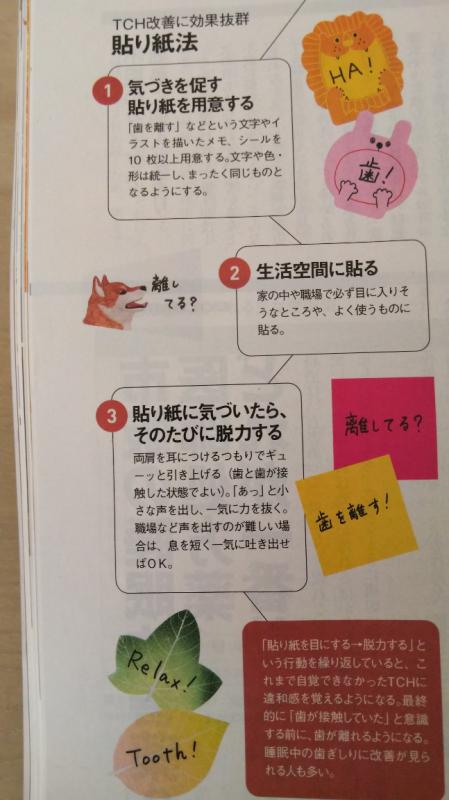 TCH改善に効果抜群
貼り紙法
HA!
歯!
1
気づきを促す
貼り紙を用意する
「歯を離す」などという文字やイ
ラストを描いたメモ、シールを
10枚以上用意する。文字や色・
形は統一し、まったく同じものと
なるようにする。
離し
てる?
2
生活空間に貼る
家の中や職場で必ず目に入りそ
うなところや、よく使うものに
貼る。
3
貼り紙に気づいたら、
そのたびに脱力する
両肩を耳につけるつもりでギュ
ーッと引き上げる(歯と歯が接
触した状態でよい)。「あっ」と小
さな声を出し、一気に力を抜く。
職場など声を出すのが難しい場
合は、息を短く一気に吐き出せ
ばOK。
離してる?
歯を離す!
Relax!
Tooth!
「貼り紙を目にする→脱力する」と
いう行動を繰り返していると、こ
れまで自覚できなかったTCHに
違和感を覚えるようになる。最終
的に「歯が接触していた」と意識
する前に、歯が離れるようになる。
睡眠中の歯ぎしりに改善が見ら
れる人も多い。